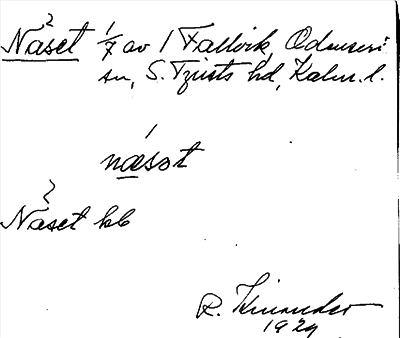 Näset 1/7 av 1 Fallvik, Odensvi
sn, S. Tjusts hd, Kalm. l.
næsət
Näset hb
R. Kinander
1929